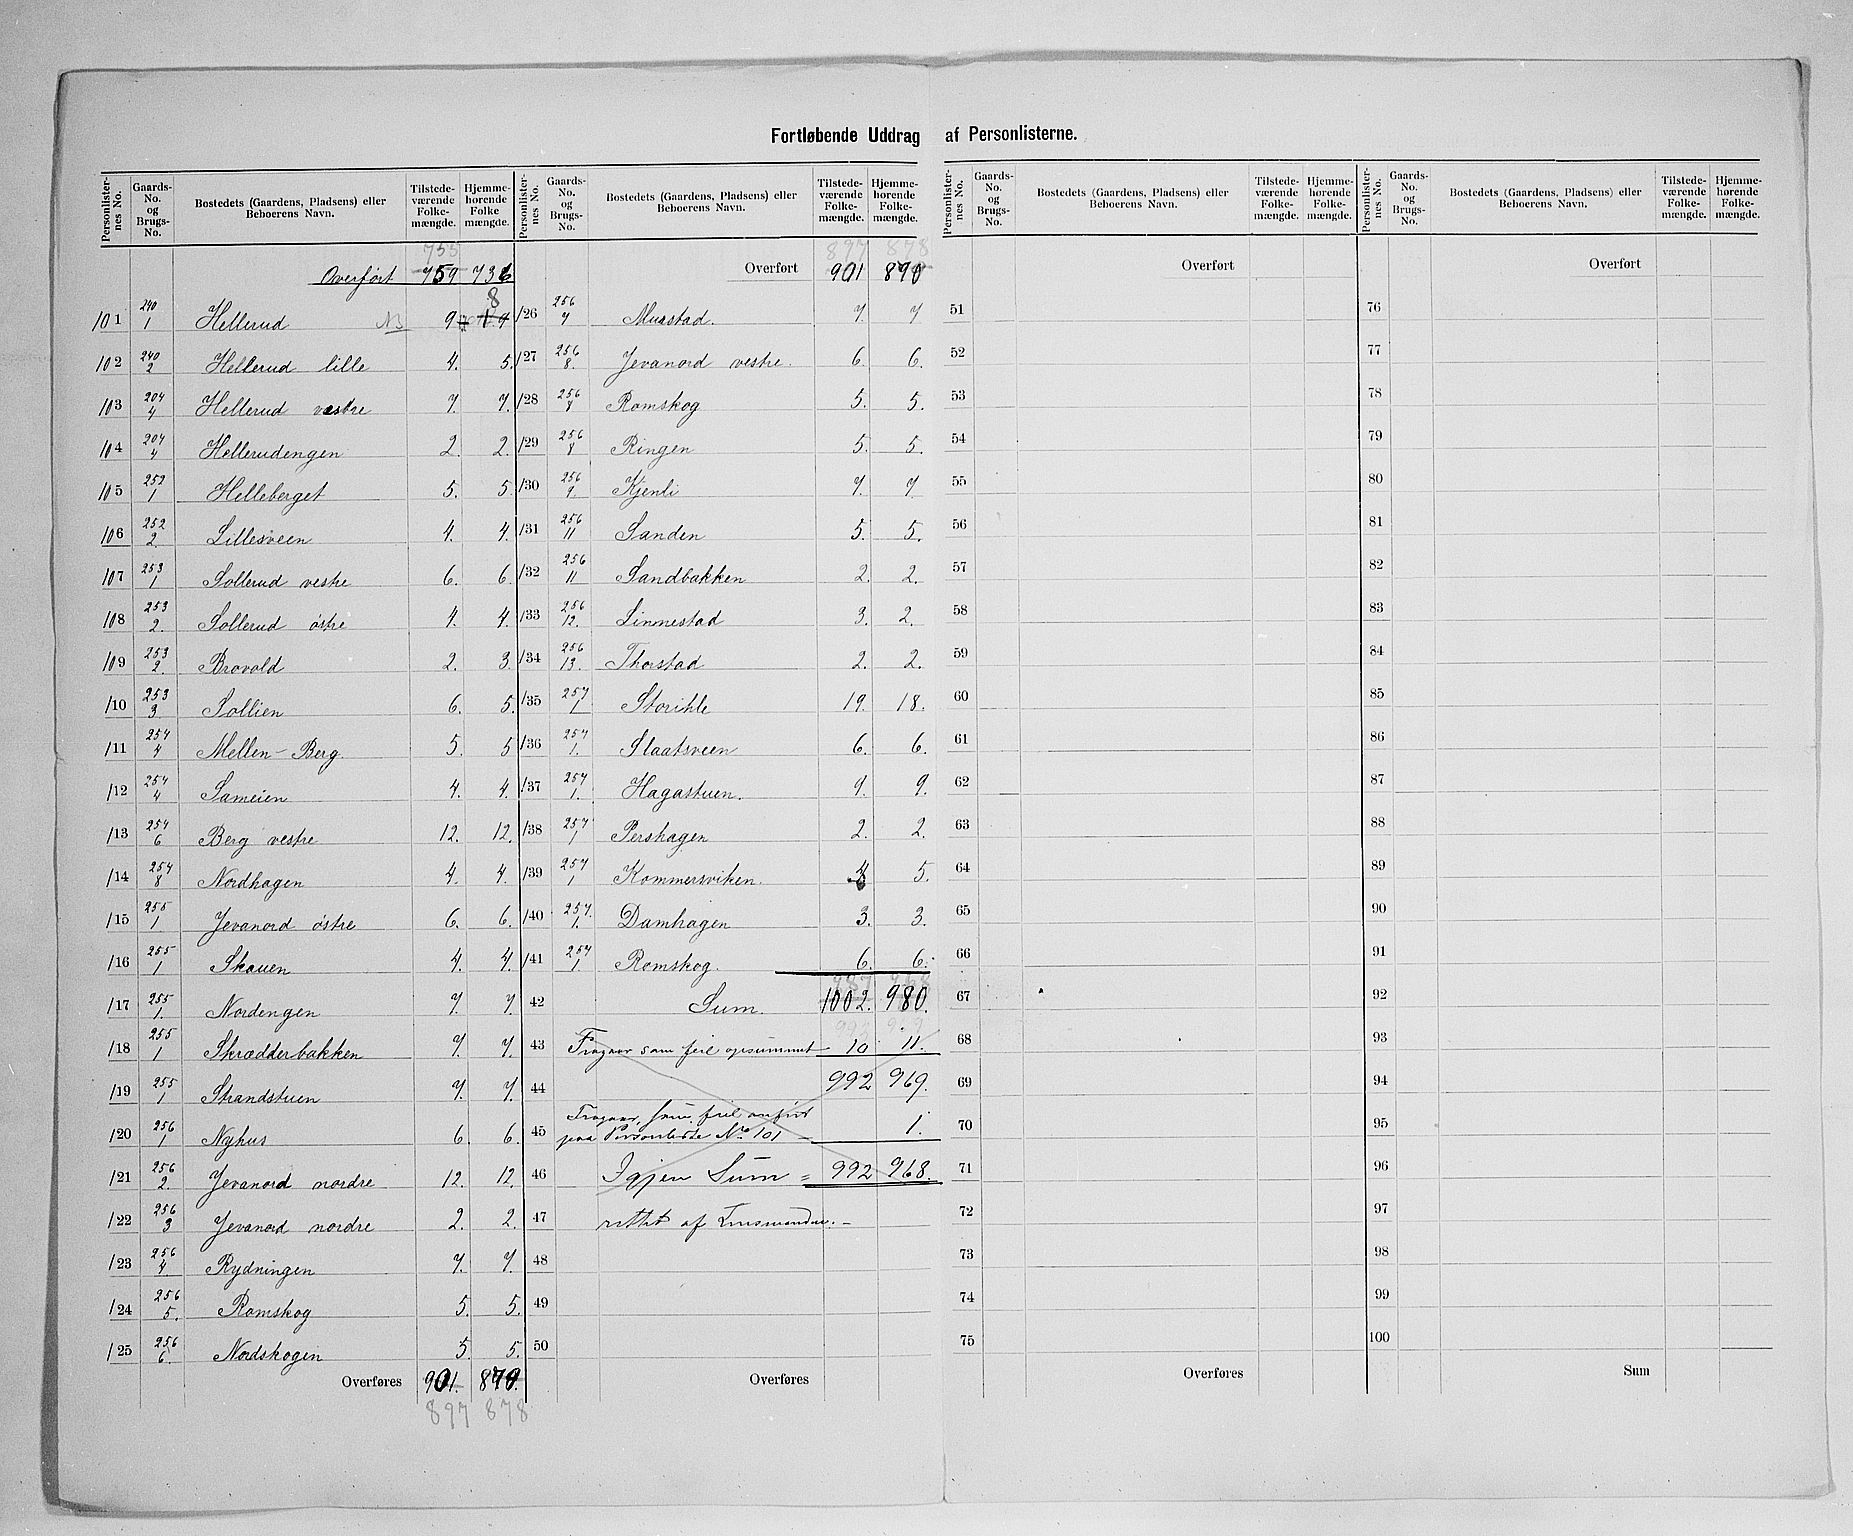 Fortløbende Uddrag af Personlisternes.
Personlisternes No. Gaards-No. og Brugs-No. Bostedets (Gaardens, Pladsens) eller Beboerens Navn. Tilstedeværende Folkemængde. Hjemmehørende Folkemængde.
755
Overført 759 736
101 240/1 Hellerud NB 9 8
102 240/2 Hellerud lille 4. 5.
103 204/4 Hellerud vestre 7. 7.
104 204/4 Hellerudengen 2. 2.
105 252/1 Helleberget 5. 5.
106 252/2. Lillesveen 4. 4.
107 253/1 Sollerud vestre 6. 6.
108 253/2. Sollerud østre 4. 4.
109 253/2. Brovold 2. 3.
110 253/3. Sollien 6. 5.
111 254/4 Mellen-Berg. 5. 5
112 254/4 Sameien 4. 4.
113 254/6 Berg vestre 12. 12.
114 254/8 Nordhagen 4. 4.
115 255/1 Jevanord østre 6. 6.
116 255/1 Skauen 4. 4.
117 255/1. Nordengen 7. 7.
118 255/1 Skrædderbakken 7. 7.
119 255/1 Strandstuen 7. 7.
120 256/1 Nyhus 6. 6.
121 256/2. Jevanord nordre 12. 12.
122 256/3 Jevanord nordre 2. 2.
123 256/4. Rydningen 7. 7.
124 256/5. Romskog 5. 5.
125 256/6. Nordskogen 5. 5.
Overføres 901. 879.
897 878
Personlisternes No. Gaards-No. og Brugs-No. Bostedets (Gaardens, Pladsens) eller Beboerens Navn. Tilstedeværende Folkemængde. Hjemmehørende Folkemængde.
897 878
Overført 901 890
126 256/7 Murstad. 7. 7
127 256/8. Jevanord vestre. 6. 6.
128 256/8 Romskog 5. 5.
129 256/8 Ringen 5. 5.
130 256/9. Kjenli 7. 7
131 256/11 Sanden 5. 5.
132 256/11 Sandbakken 2. 2.
133 256/12. Linnestad 3. 2.
134 256/13. Thorstad 2. 2.
135 257/1 Storihle 19. 18.
136 257/1. Slaatsveen 6. 6.
137 257/1. Hagastuen. 9. 9.
138 257/1 Pershagen 2. 2.
139 257/1 Kommersviken. 4 5.
140 257/1. Damhagen 3. 3.
141 257/1. Romskog. 6. 6.
987 968
42 Sum. 1002. 980.
43 Fragaar som feil opsummet 10 11.
44 992 969.
45 Fragaar, som feil anført
paa Personliste No 101 1.
46 Igjen Sum = 992 968.
47 rettet af Lensmanden. –
48
49
50
Overføres
Personlisternes No. Gaards-No. og Brugs-No. Bostedets (Gaardens, Pladsens) eller Beboerens Navn. Tilstedeværende Folkemængde. Hjemmehørende Folkemængde.
Overført
51
52
53
54
55
56
57
58
59
60
61
62
63
64
65
66
67
68
69
70
71
72
73
74
75
Overføres
Personlisternes No. Gaards-No. og Brugs-No. Bostedets (Gaardens, Pladsens) eller Beboerens Navn. Tilstedeværende Folkemængde. Hjemmehørende Folkemængde.
Overført
76
77
78
79
80
81
82
83
84
85
86
87
88
89
90
91
92
93
94
95
96
97
98
99
100
Sum